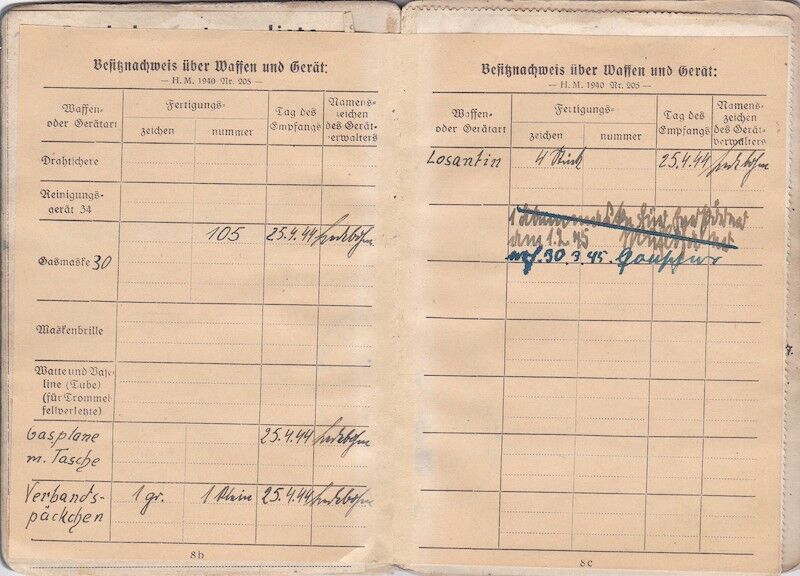 Besitznachweis über Waffen und Gerät:
— H. M. 1940 Nr. 205 —
Waffen-
oder Gerätart
Fertigungs-
zeichen
nummer
Tag des
Empfangs
Namens-
zeichen
des Gerät-
verwalters
Drahtschere
Reinigungs-
gerät 34
Gasmaske 30
105
25.4.44
Maskenbrille
Watte und Vase-
line (Tube)
(für Trommel-
fellverletzte)
Gasplane
m. Tasche
25.4.44
Verbands-
päckchen
1 gr.
1 klein
25.4.44
8b
Besitznachweis über Waffen und Gerät:
— H. M. 1940 Nr. 205 —
Waffen-
oder Gerätart
Fertigungs-
zeichen
nummer
Tag des
Empfangs
Namens-
zeichen
des Gerät-
verwalters
Losantin
4 Stück
25.4.44
am 1.2.45
30.3.45.
8c